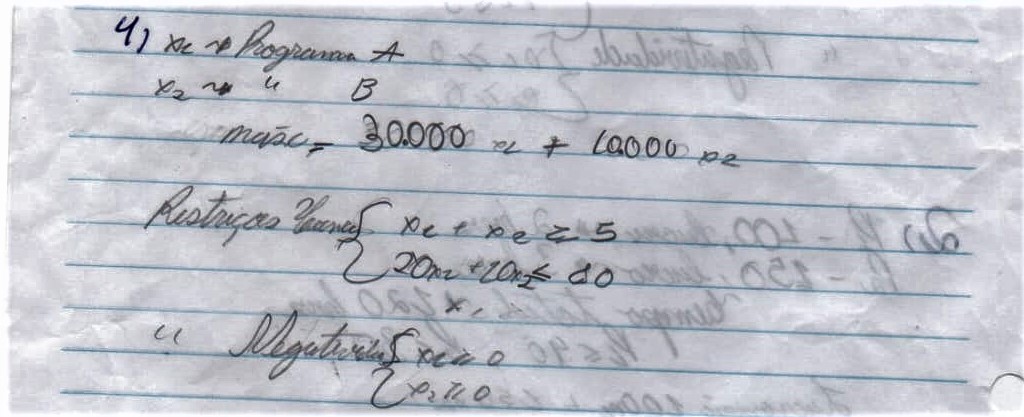 4) x1 → Programa A
x2 → " B
máx = 30.000 x1 + 10.000 x2
Restrições { x1 + x2 ≥ 5
20x1 + 10x2 ≤ 80
" Negatividade { x1 ≥ 0
x2 ≥ 0